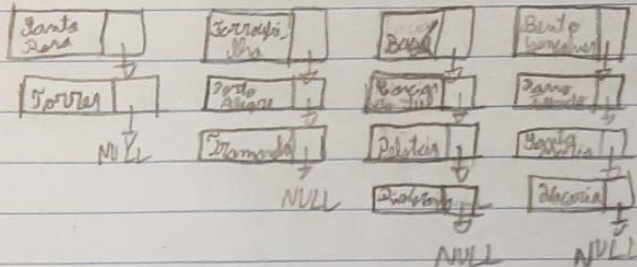 Santa
Rosa
Torres
NULL
Farroupi
lha
Porto
Alegre
Tramandaí
NULL
Bagé
Caxias
do Sul
Pelotas
NULL
Bento
Gonçalves
Passo
Fundo
Santa
Maria
Vacaria
NULL